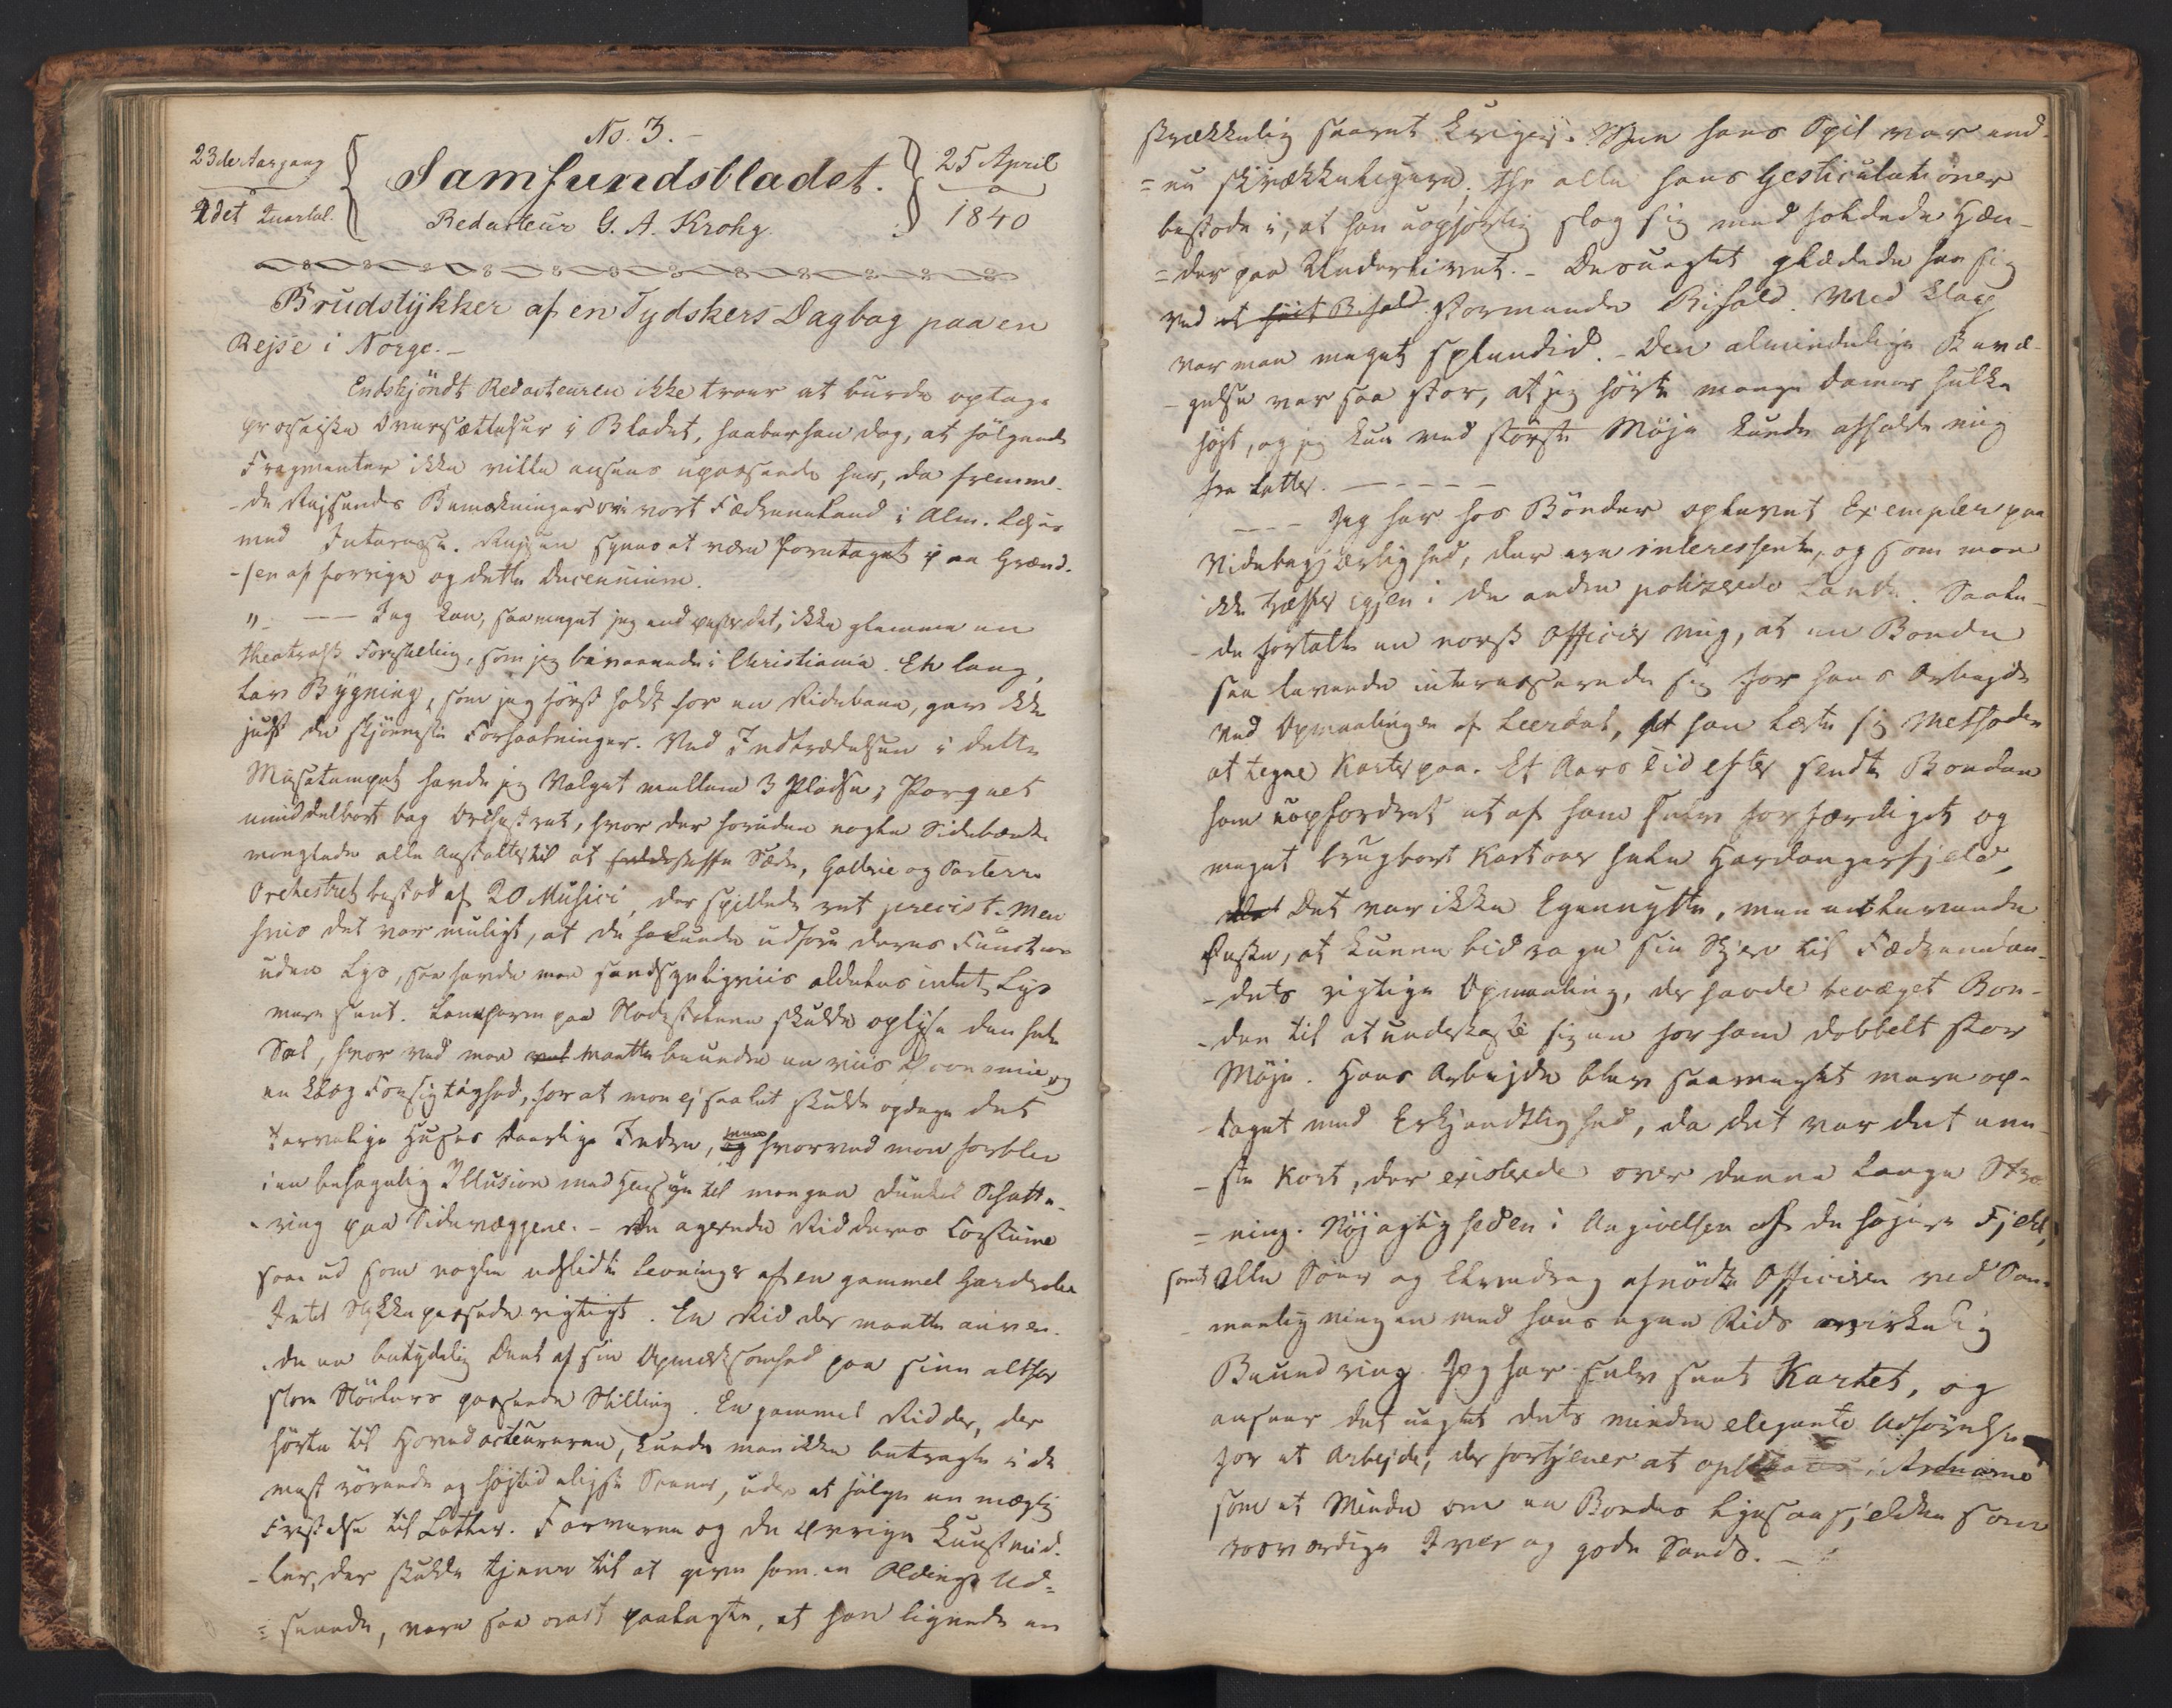 No. 3.-
23de Aargang
2det Quartal.
Samfundsbladet.
Redacteur G. A. Krohg.
25 April
1840
Brudstykker af en Tydskers Dagbog paa en
Rejse i Norge.-
Endskjöndt Redacteuren ikke troer at burde optage
prosaiske Oversættelser i Bladet, haaber han dog, at fölgende
Fragmenter ikke ville ansees upassende her, da fremme-
-de Rejsendes Bemærkninger over vort Fædreneland i Alm. læses
med Interesse. Rejsen synes at være foretaget paa Grænd-
-sen af forrige og dette Decennium.
"- --- Jeg kan, saa meget jeg end ønsker det, ikke glemme en
theatralsk Forestilling, som jeg bivaanede i Christiania. En lang,
lav Bygning, som jeg först holdt for en Ridebane, gav ikke
just de skjönneste Forhaabninger. Ved Indtrædelsen i dette
Musetempel havde jeg Valget mellem 3 Pladse; Parquet
umiddelbart bag Orchestret, hvor der foruden nogle Sidebænke
manglede alle Anstalter til at Sæde, Gallerie og Parterre
Orchestret bestod af 20 Musici, der spillede ret precist. Men
hvis det var muligt, at de kunde udföre deres Function
uden Lys, saa havde man sandsynligviis aldeles intet Lys
mere seet. Lamperne paa Nodestolene skulde oplyse den hele
Sal, hvorved man maatte beundre en viis Oeconomie og
en klog Forsigtighed, for at man ej saa let skulde opdage det
tarvelige Huses daarlige Indre, men hvorved man forblev
i en behagelig Illusion med Hensyn til mangen dunkel Schatte-
-ring paa Sidevæggene.- De agerende Ridderes Costume
saae ud som nogle udslidte Levninger af en gammel Garderobe
Intet Stykke passede rigtigt. En Ridder maatte anven-
-de en betydelig Deel af sin Opmærksomhed paa sine altfor
store Stövlers passende Stilling. En gammel Ridder, der
hörte til Hovedacteurerne, kunde man ikke betragte i de
mest rörende og höjtideligste Scener, uden at föle en mægtig
Fristelse til Latter. Farverne og de övrige Kunstmid-
-ler, der skulde tjene til at give ham en Oldings Ud-
=seende, vare saa paalagte, at han lignede en
skrækkelig saaret Kriger. Men hans Spil var end-
=nu skrækkeligere, thi alle hans Gesticulationer
bestode i, at han uophörlig slog sig med foldede Hæn-
=der paa Underlivet.- Desuagtet glædede han sig
ved et höit Bifald stormende Bifald. Med Klap
var man meget splendid.- Den almindelige Bevæ-
-gelse var saa stor, at jeg hörte mange Damer hulke
höjt, og jeg kun med störste Möje kunde afholde mig
fra Latter. - - - - -
--- Jeg har hos Bönder oplevet Exempler paa
Videbegjærlighed, der ere interessente, og som man
ikke træffer igjen i de andre poliserede Lande. Saale-
-de fortalte en norsk Officier mig, at en Bonde
saa levende interesserede sig for hans Arbejde
ved Opmaalingen af Leerdal, at han lærte sig Methoden
at tegne Karter paa. Et Aars Tid efter sendte Bonden
ham uopfordret et af ham selv forfærdiget og
meget brugbart Kart over hele Hardangerfjeld,
Det var ikke Egennytte, men et levende
Ønske, at kunne bidrage sin Skjerv til Fædrenelan-
-dets rigtige Opmaaling, der havde bevæget Bon-
-den til at underkaste sig en for ham dobbelt stor
Möje. Hans Arbejde blev saa meget mere op-
-taget med Erkjendtlighed, da det var det ene-
-ste Kart, der existerede over denne lange Stræ
=ning. Nöjagtigheden i Angivelsen af de höjere Fjelde,
samt alle Söer og Elvedrag afnödte Officieren ved Sam-
-menligningen med hans egen Rids virkelig
Beundring. Jeg har selv seet Kartet, og
anseer det uagtet dets mindre elegante Udförelse
for et Arbejde, der fortjener at
som et Minde om en Bondes ligesaa sjeldne som
rosværdige Iver og gode Sands.-